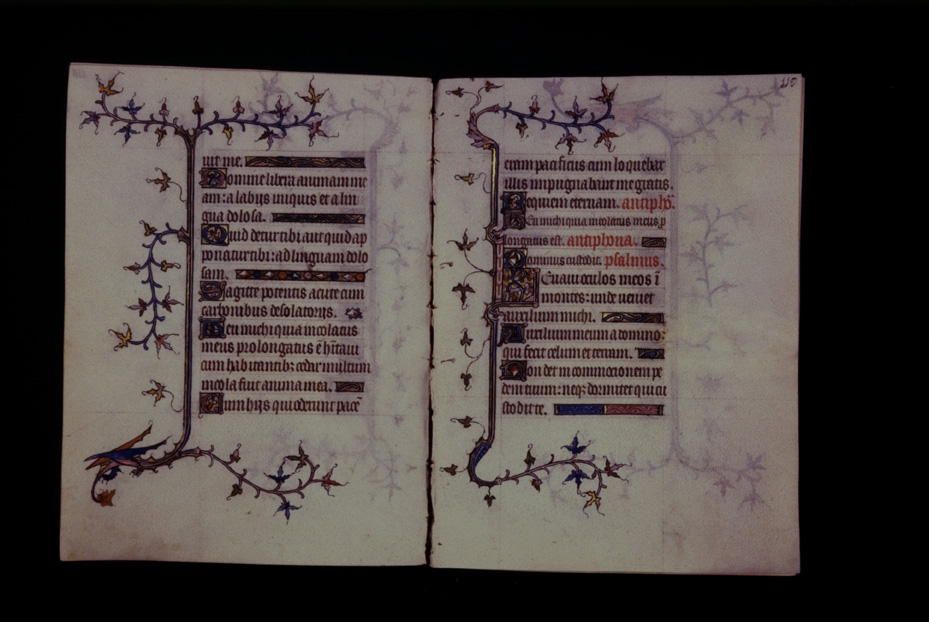 uit me.
Domine libera animam me
am: a labijs iniquis et a lin
gua dolosa.
Quid detur tibi aut quid ap
ponatur tibi: ad linguam dolo
sam.
Sagitte potentis acute cum
carbonibus desolatorijs.
Heu michi quia incolatus
meus prolongatus ē hītaui
cum habitantibꝫ cedar multum
incola fuit anima mea.
Cum hijs qui oderunt pacē
eram pacificus cum loquebar
illis impugnabant me gratis.
Requiem eternam. antiph̄.
Heu michi quia incolatus meus ꝓ
longatus est. antiphona.
Dominus custodit. psalmus.
Leuaui oculos meos ī
montes: unde ueniet
auxilium michi.
Auxilium meum a domino:
qui fecit celum et terram.
Non det in commotionem pe
dem tuum: neqꝫ dormitet qui cu
stodit te.